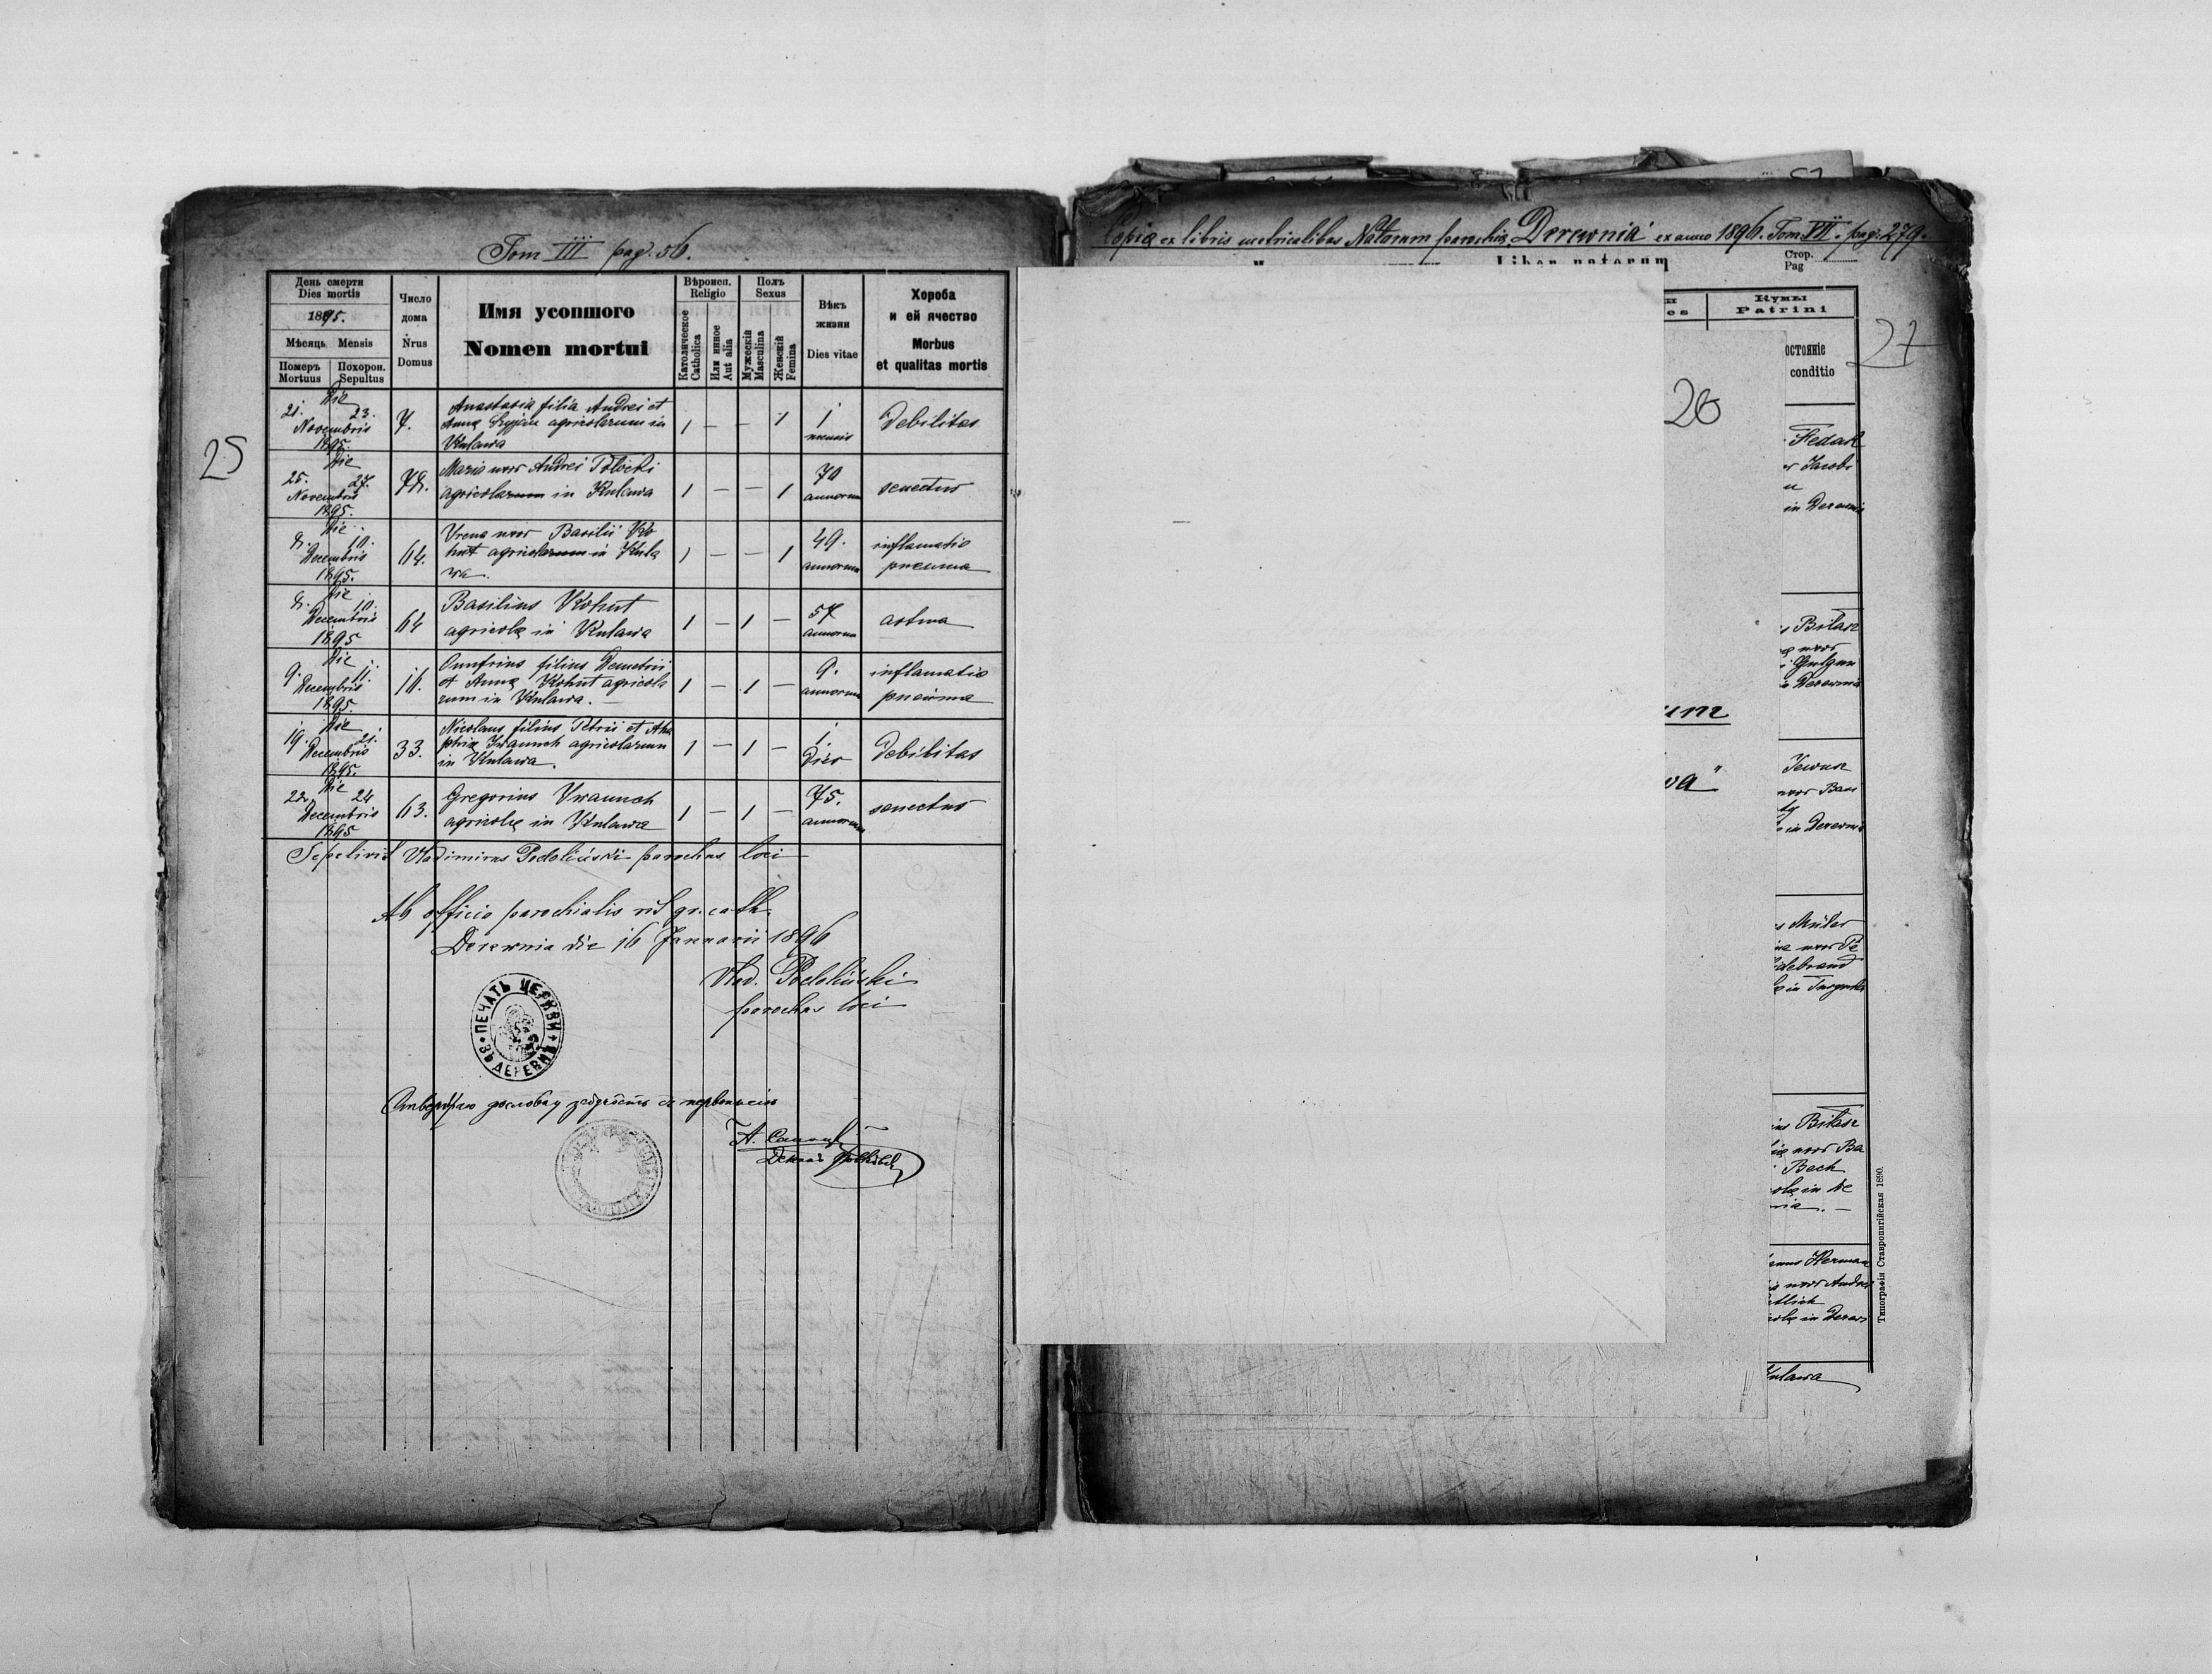 Tom III pag. 56.
День смерти
Dies mortis
1895.
Мѣсяць Mensis
Померъ Mortuus
Похорон. Sepultus
Число дома
Nrus Domus
Имя усопшого
Nomen mortui
Вѣроисп.
Religio
Католическое Catholica
Или инное Aut alia
Полъ
Sexus
Мужескій Masculina
Женскій Femina
Вѣкъ жизни
Dies vitae
Хороба
и ей ячество
Morbus
et qualitas mortis
25
Die
21. 23.
Novembris
1895.
7.
Anastasia filia Andrei et
Annæ agricolarum in
Kulawa
1 — — 1
1
mensis
Debilitas
Die
25. 27.
Novembris
1895.
Maria uxor Andrei Tołocki
agricolarum in Kulawa
1 — — 1
70
annorum
senectus
Die
8. 10.
Decembris
1895.
64.
Irena uxor Basilii Ko
hut agricolarum in Kula
wa.
1 — — 1
49.
annorum
inflamatio
pneuma
Die
8. 10.
Decembris
1895
64
Basilius Kohut
agricola in Kulawa
1 — 1 —
57
annorum
astma
Die
9. 11.
Decembris
1895.
16.
Onufrius filius Demetrii
et Annæ Kohut agricola
rum in Kulawa. —
1 — 1 —
9.
annorum
inflamatio
pneuma
Die
19. 21.
Decembris
1895.
33.
Nicolaus filius Petrii et Aha
phiæ Iwanuch agricolarum
in Kulawa.
1 — 1 —
1.
Dies
Debilitas
Die
22. 24
Decembris
1895
63.
Gregorius Iwanuch
agricola in Kulawa
1 — 1 —
75.
annorum
senectus
Sepelivit Vladimirus Podoliński parochus loci
Ab officio parochialis rit gr. cath.
Derewnia die 16 Januarii 1896
Vlad. Podoliński
parochus loci
ПЕЧАТЬ ЦЕРКВИ
ВЪ ДЕРЕВНИ
Деканъ
Copia ex libris metricalibus Natorum parochiæ Derewnia ex anno 1896. Tom VII. pag. 279.
Liber natorum
Стор.
Pag
Кумы
Patrini
es
остояніе
conditio
27
26
um
wa"
Fedak
r Jacobi
in Derewnia
Bilasz
uxor
Derewnia
uxor Basi
in Derewnia
Müller
uxor Pe
ildebrand
Bilasz
uxor Ba
Bech
olæ in De
nia. —
Herman
uxor Andre
in Derew
Kulawa
Типографія Ставропигійская 1890.